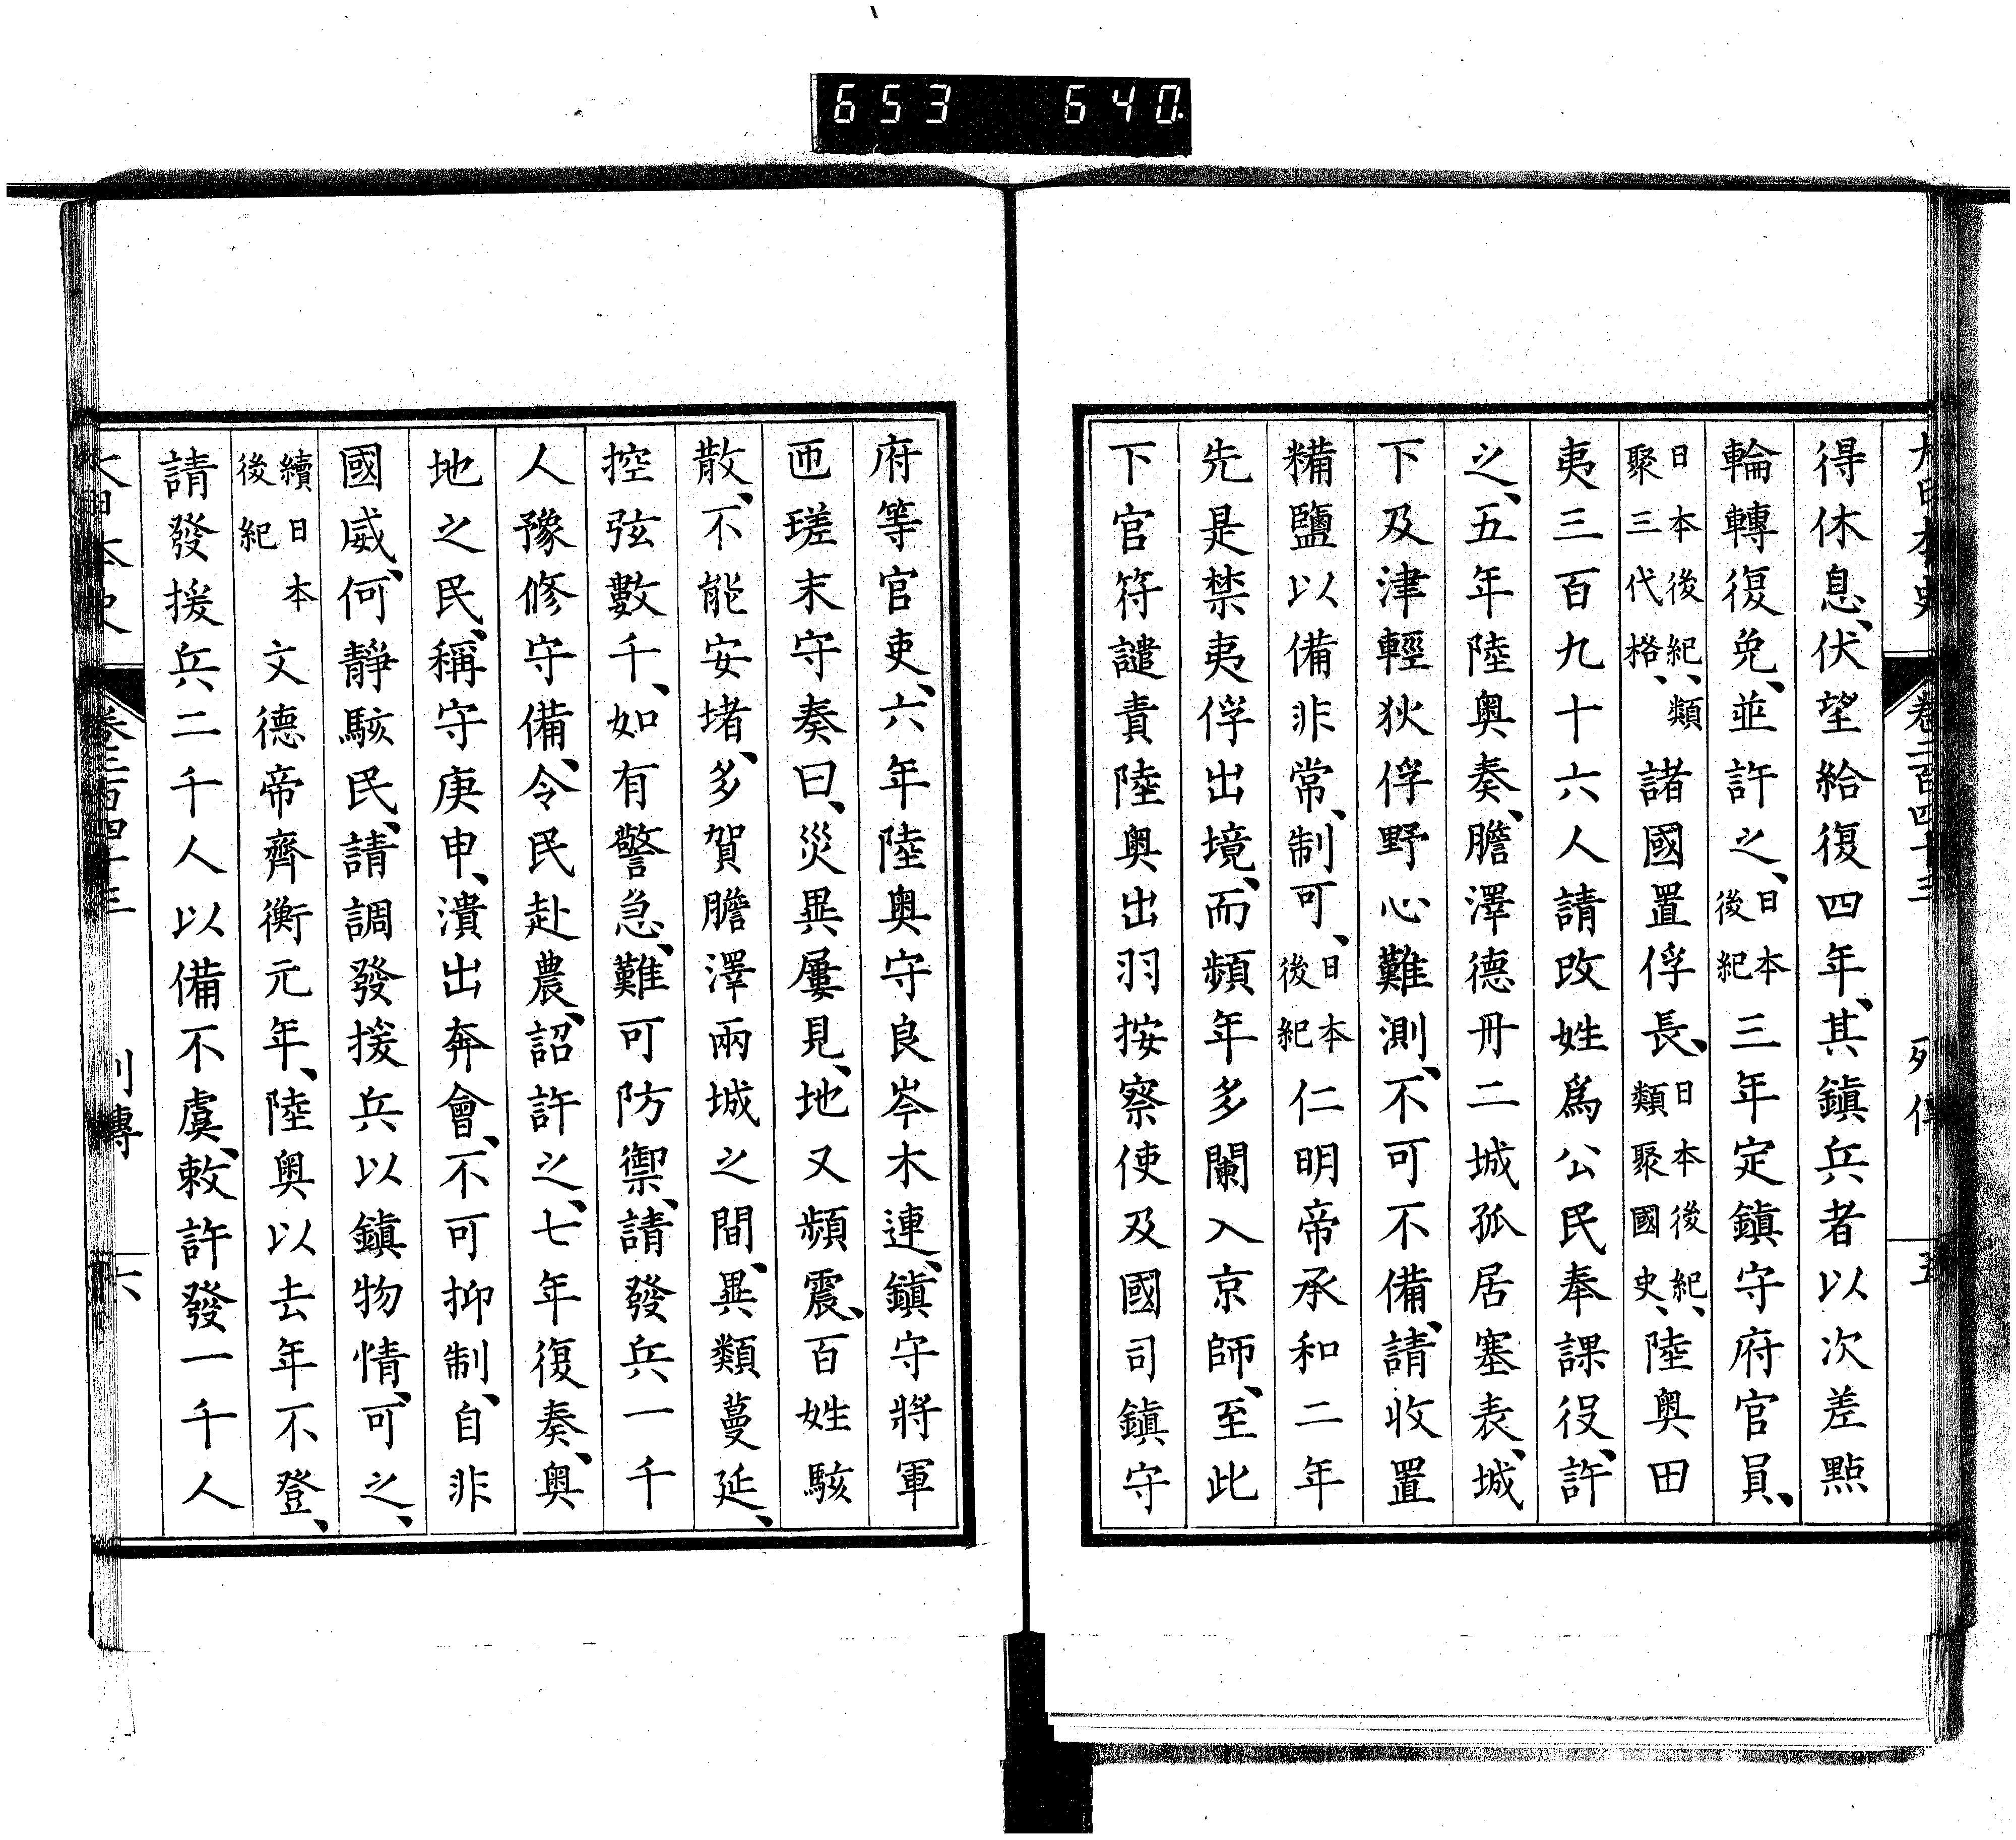 653 640
得休息、伏望給復四年、其鎮兵者以次差點
輪轉復免、並許之、日本後紀三年定鎮守府官員、
日本後紀、類聚三代格、諸國置俘長、日本後紀、類聚國史、陸奥田
夷三百九十六人請改姓爲公民奉課役、許
之、五年陸奥奏、膽澤德丹二城孤居塞表、城
下及津輕狄俘野心難測、不可不備、請收置
糒鹽以備非常、制可、日本後紀仁明帝承和二年
先是禁夷俘出境、而頻年多闌入京師、至此
下官符譴責陸奥出羽按察使及國司鎮守
府等官吏、六年陸奥守良岑木連、鎮守將軍
匝瑳末守奏曰、災異屢見、地又頻震、百姓駭
散、不能安堵、多賀膽澤兩城之間、異類蔓延、
控弦數千、如有警急、難可防禦、請發兵一千
人豫修守備、令民赴農、詔許之、七年復奏、奥
地之民、稱守庚申、潰出奔會、不可抑制、自非
國威、何靜駭民、請調發援兵以鎮物情、可之、
續日本後紀文德帝齊衡元年、陸奥以去年不登、
請發援兵二千人以備不虞、敕許發一千人